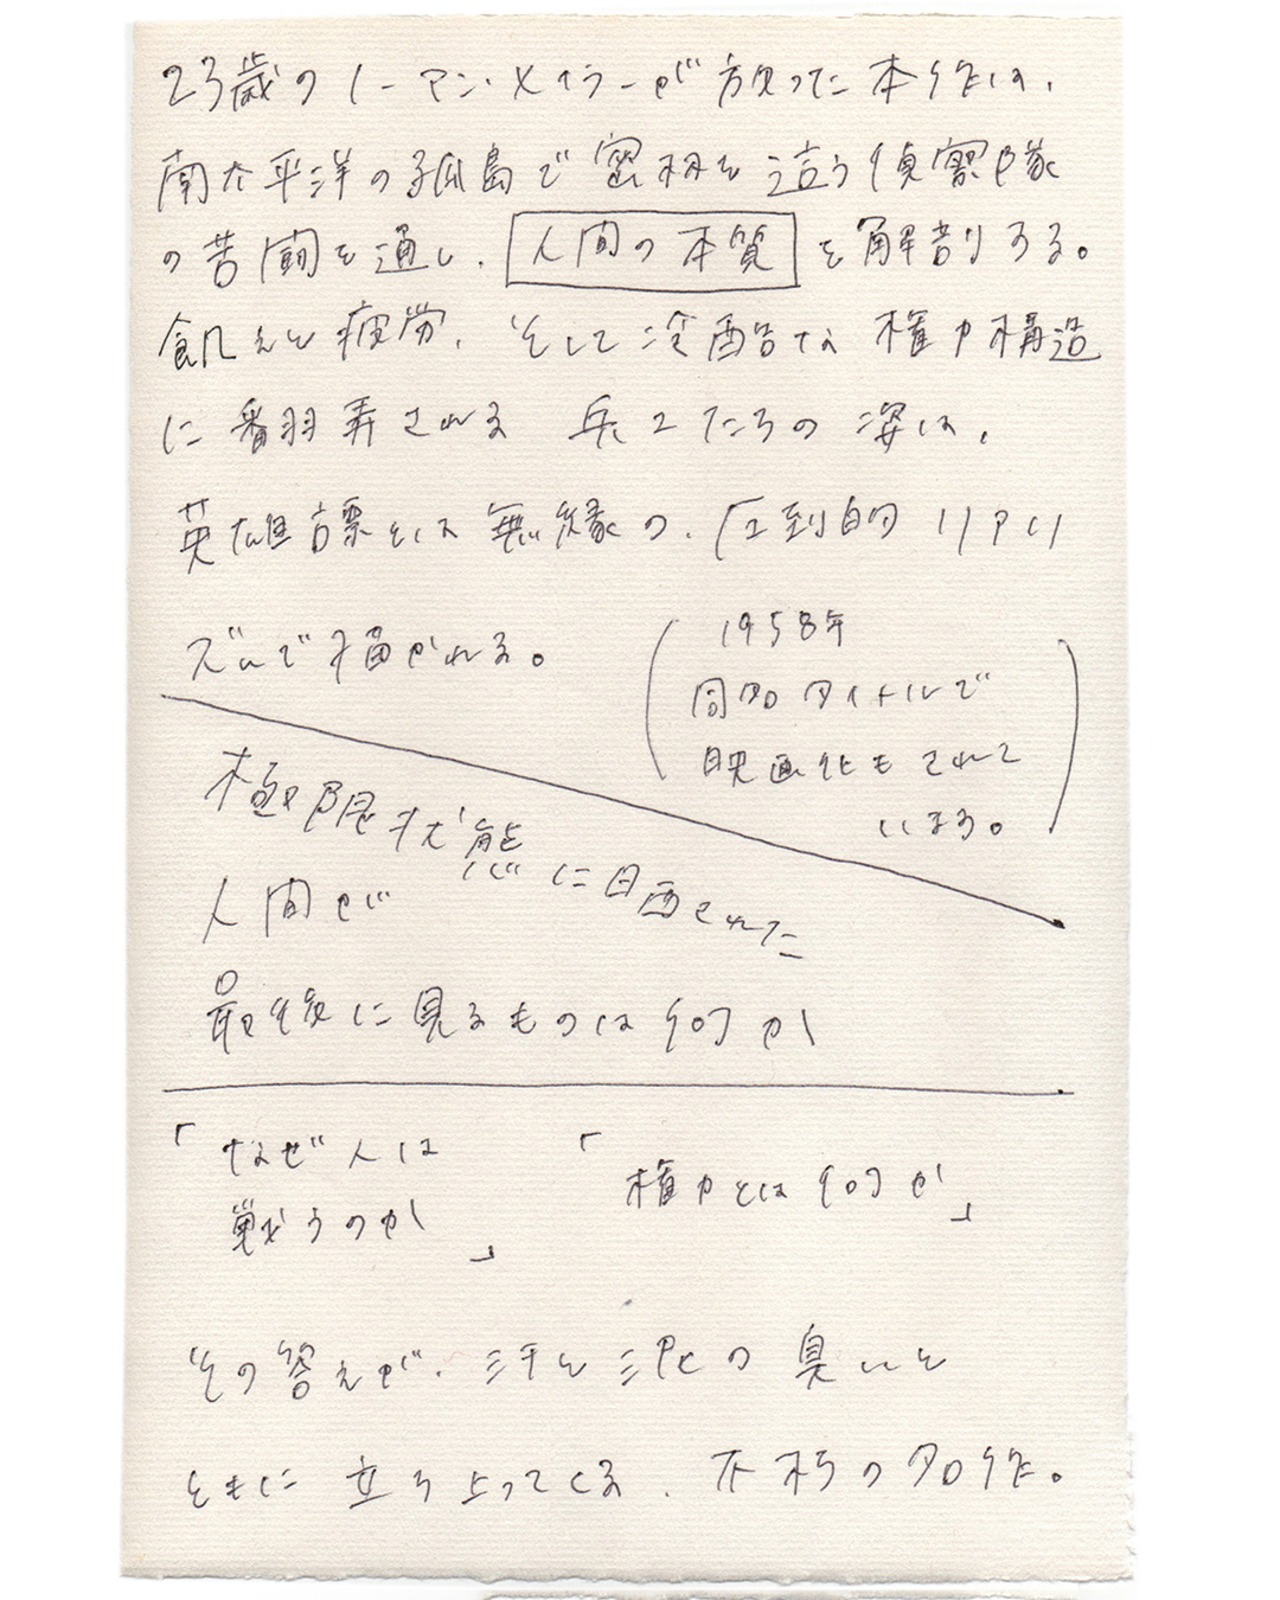 23歳のノーマン・メイラーが放った本作は、
南太平洋の孤島で密林を這う偵察隊
の苦闘を通し、人間の本質を解剖する。
飢えと疲労、そして冷酷な権力構造
に翻弄される兵士たちの姿は、
英雄譚とは無縁の、圧倒的リアリ
ズムで描かれる。
(1958年
同名タイトルで
映画化もされて
いまる。)
極限状態に目晒された
人間が
最後に見るものは何か
「なぜ人は
戦うのか」
「権力とは何か」
その答えが、汗と泥の臭いと
ともに立ち上ってくる、不朽の名作。